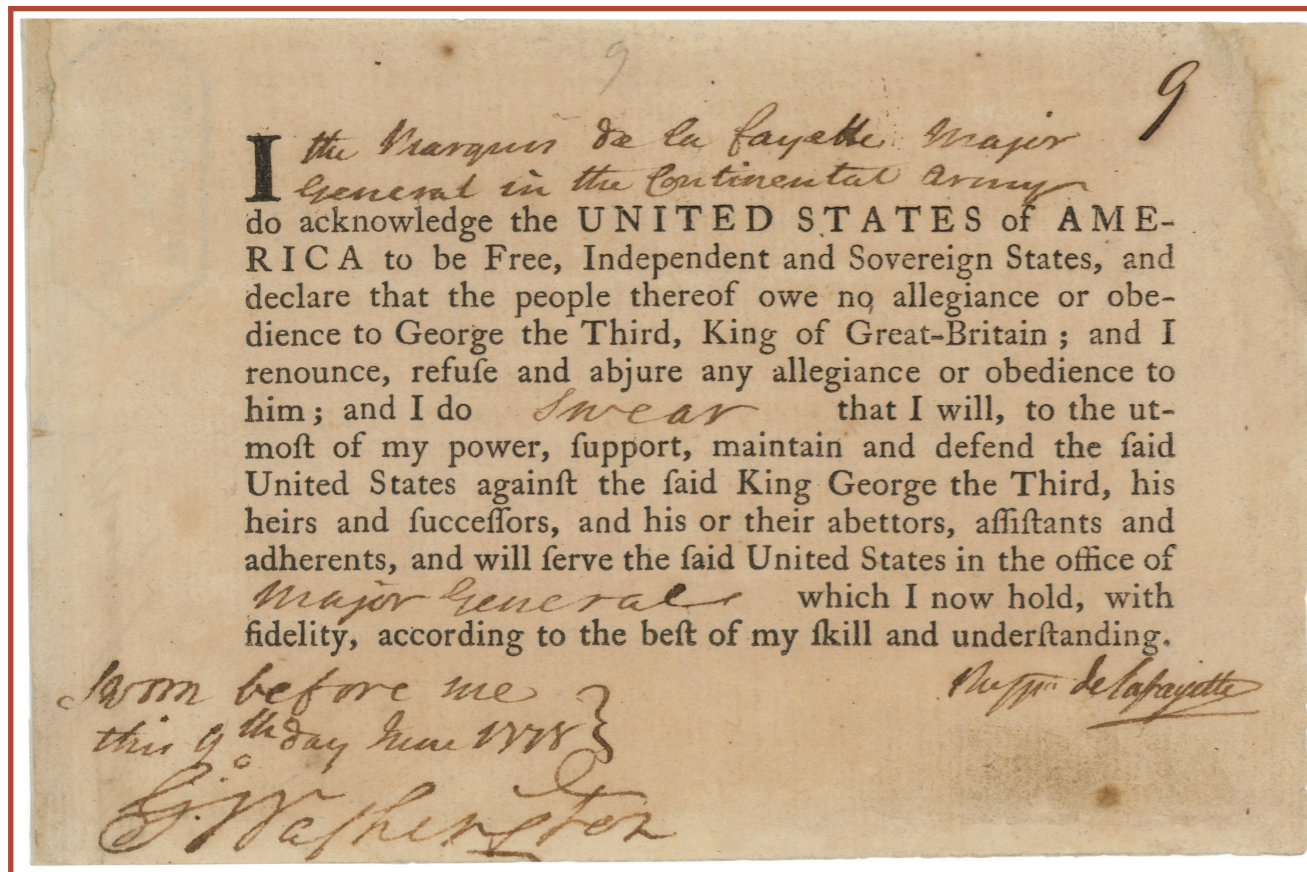 9
9
I the Marquis de la fayette Major
General in the Continental Army
do acknowledge the UNITED STATES of AME-
RICA to be Free, Independent and Sovereign States, and
declare that the people thereof owe no allegiance or obe-
dience to George the Third, King of Great-Britain ; and I
renounce, refuſe and abjure any allegiance or obedience to
him ; and I do Swear that I will, to the ut-
moſt of my power, ſupport, maintain and defend the ſaid
United States againſt the ſaid King George the Third, his
heirs and ſucceſſors, and his or their abettors, aſſiſtants and
adherents, and will ſerve the ſaid United States in the office of
Major General which I now hold, with
fidelity, according to the beſt of my ſkill and underſtanding.
Sworn before me
this 9th day June 1778
Go. Washington
de Lafayette